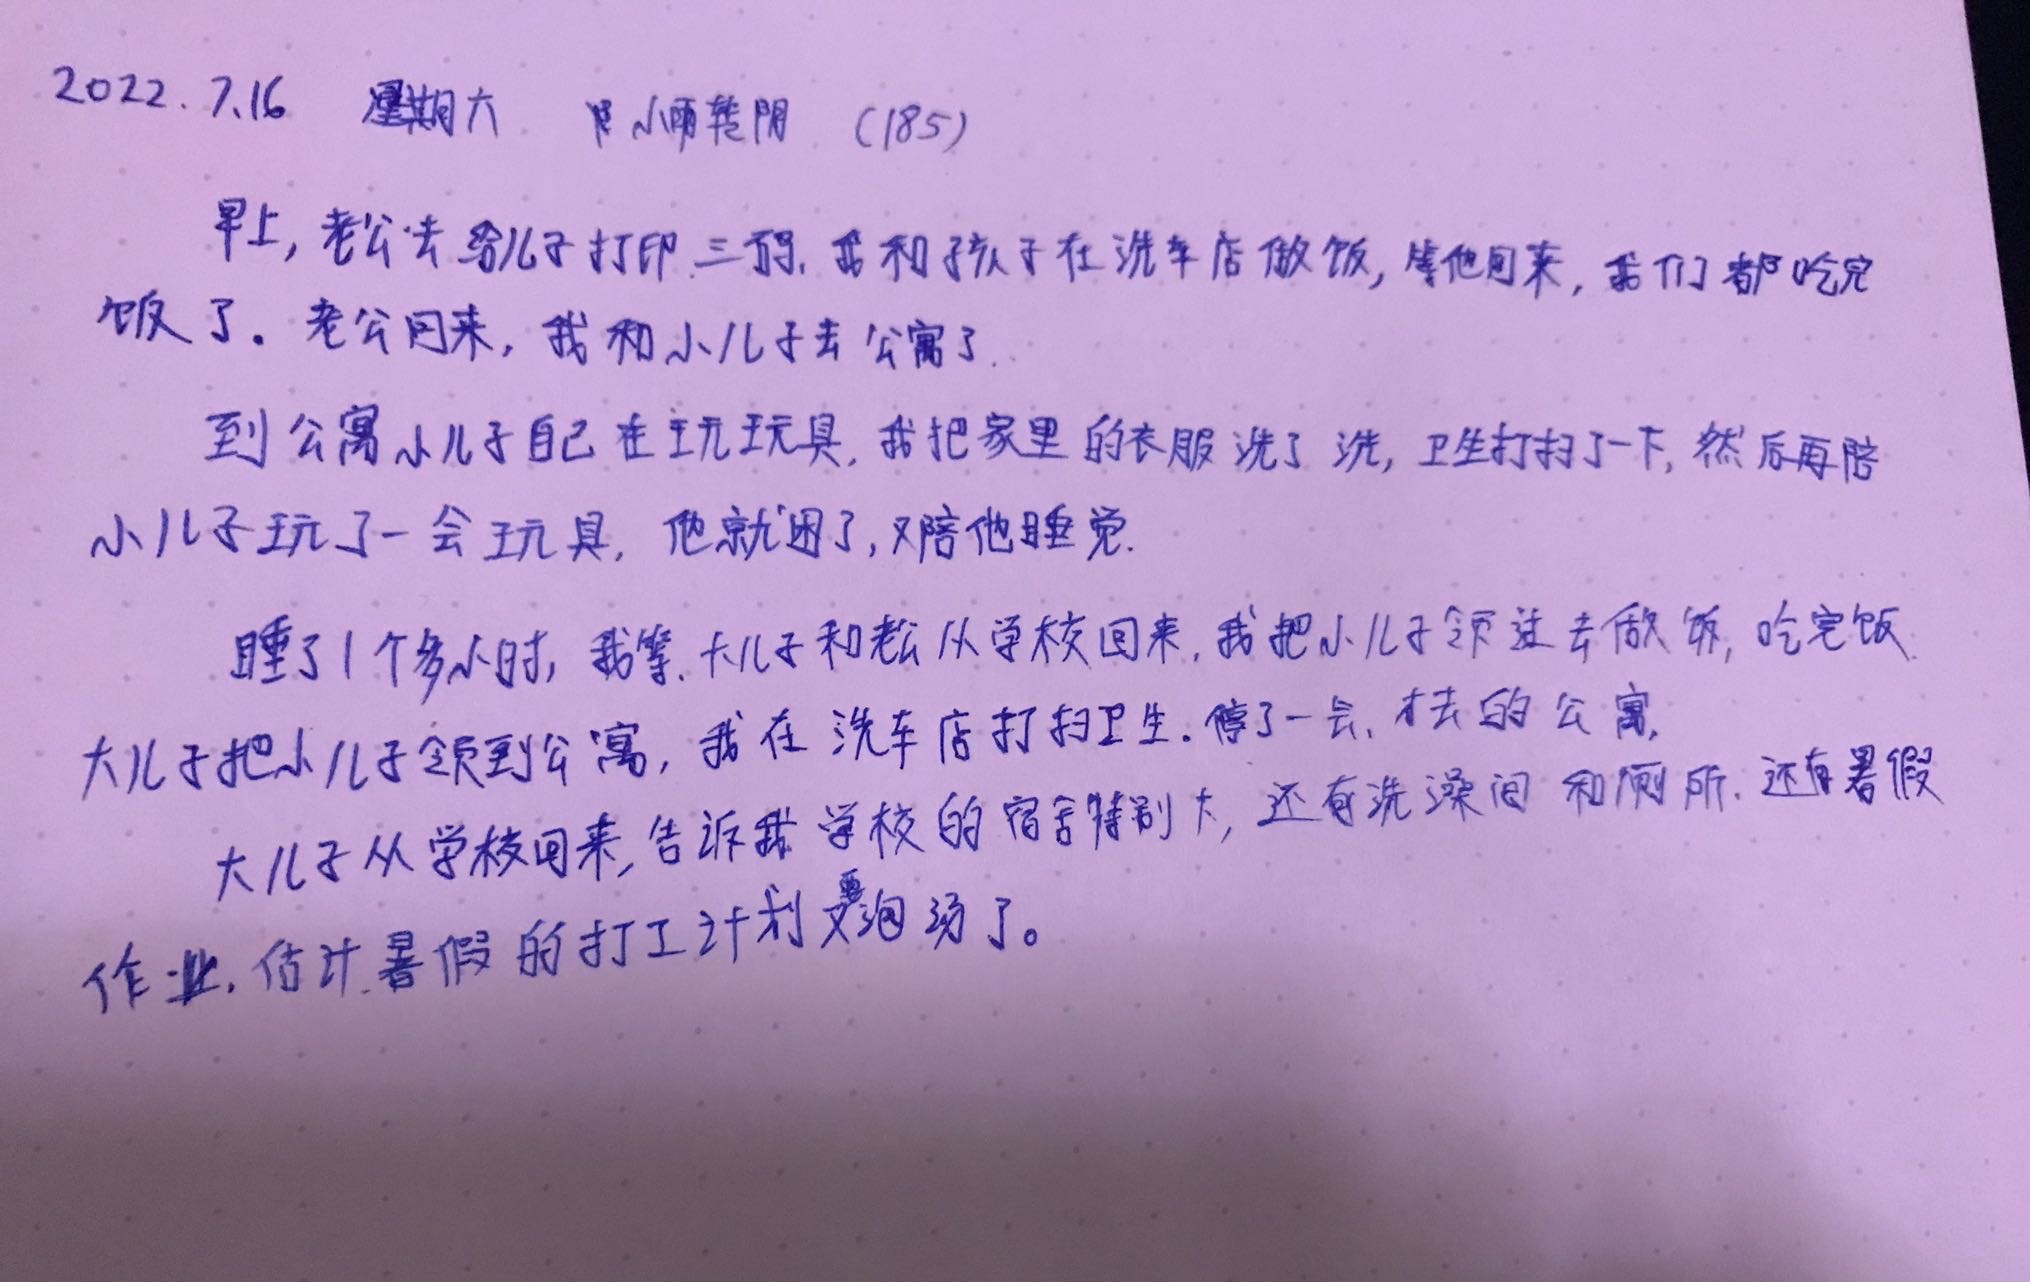 2022.7.16 星期六 小雨转阴 (185)
早上,老公去给儿子打印三码.我和孩子在洗车店做饭,等他回来,我们都吃完
饭了。老公回来,我和小儿子去公寓了.
到公寓小儿子自己在玩玩具,我把家里的衣服洗了洗,卫生打扫了一下,然后再陪
小儿子玩了一会玩具,他就困了,又陪他睡觉.
睡了1个多小时,我等.大儿子和老公从学校回来,我把小儿子领过去做饭,吃完饭.
大儿子把小儿子领到公寓,我在洗车店打扫卫生.停了一会,才去的公寓.
大儿子从学校回来,告诉我学校的宿舍特别大,还有洗澡间和厕所.还有暑假
作业.估计暑假的打工计划要泡汤了。